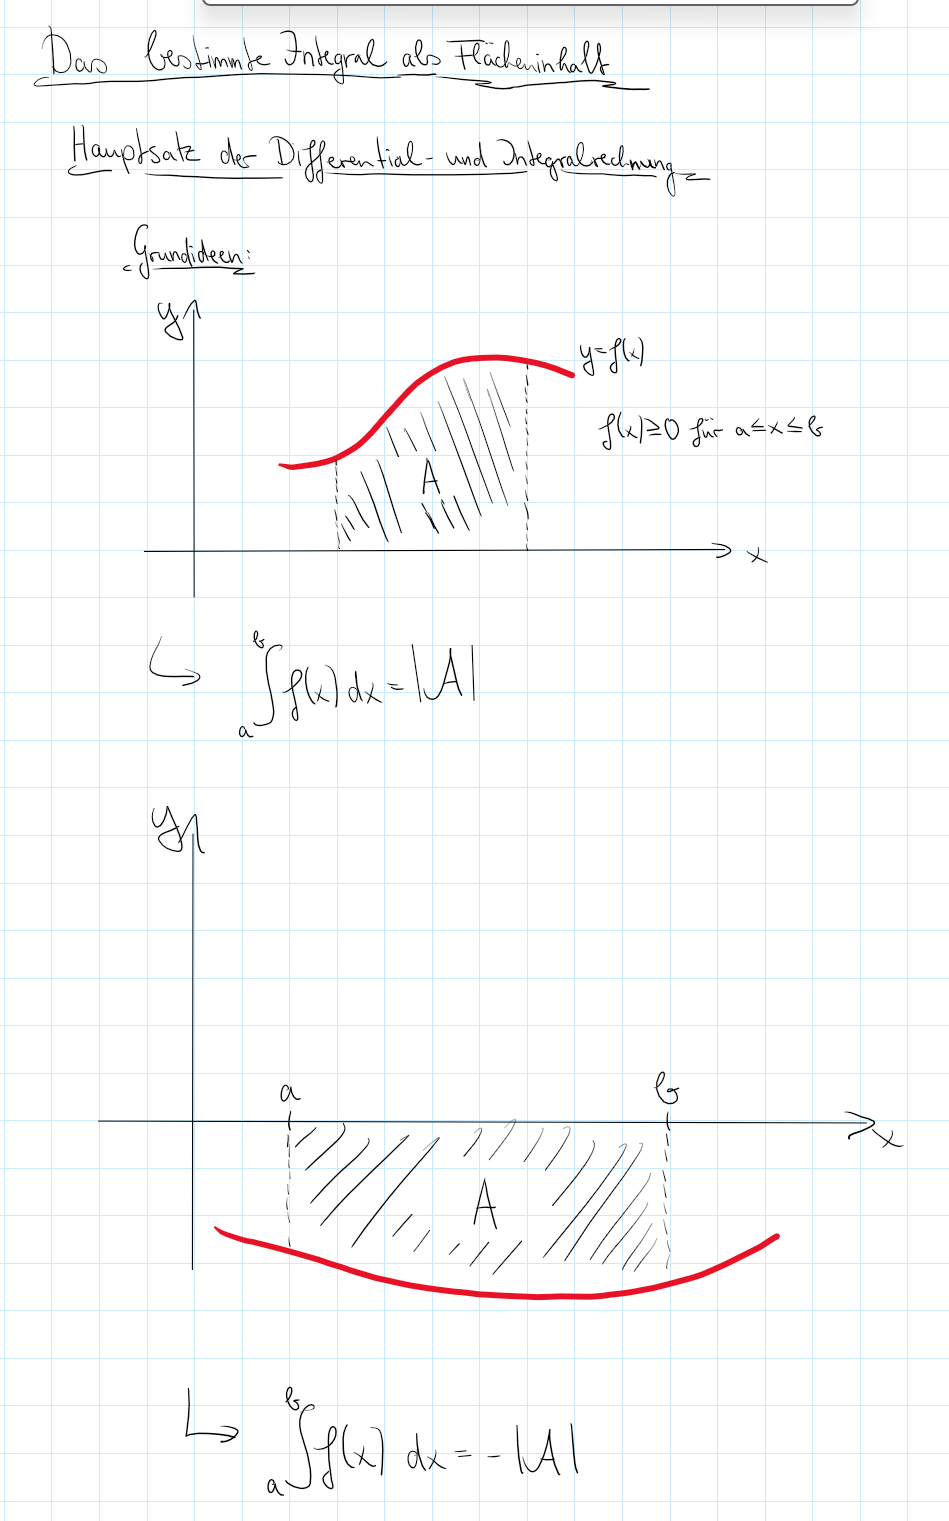 Das bestimmte Integral als Flächeninhalt
Hauptsatz der Differential- und Integralrechnung
Grundideen:
y
y=f(x)
f(x)≥0 für a≤x≤b
A
x
b
∫f(x)dx=|A|
a
y
a b
x
A
b
∫f(x) dx=-|A|
a